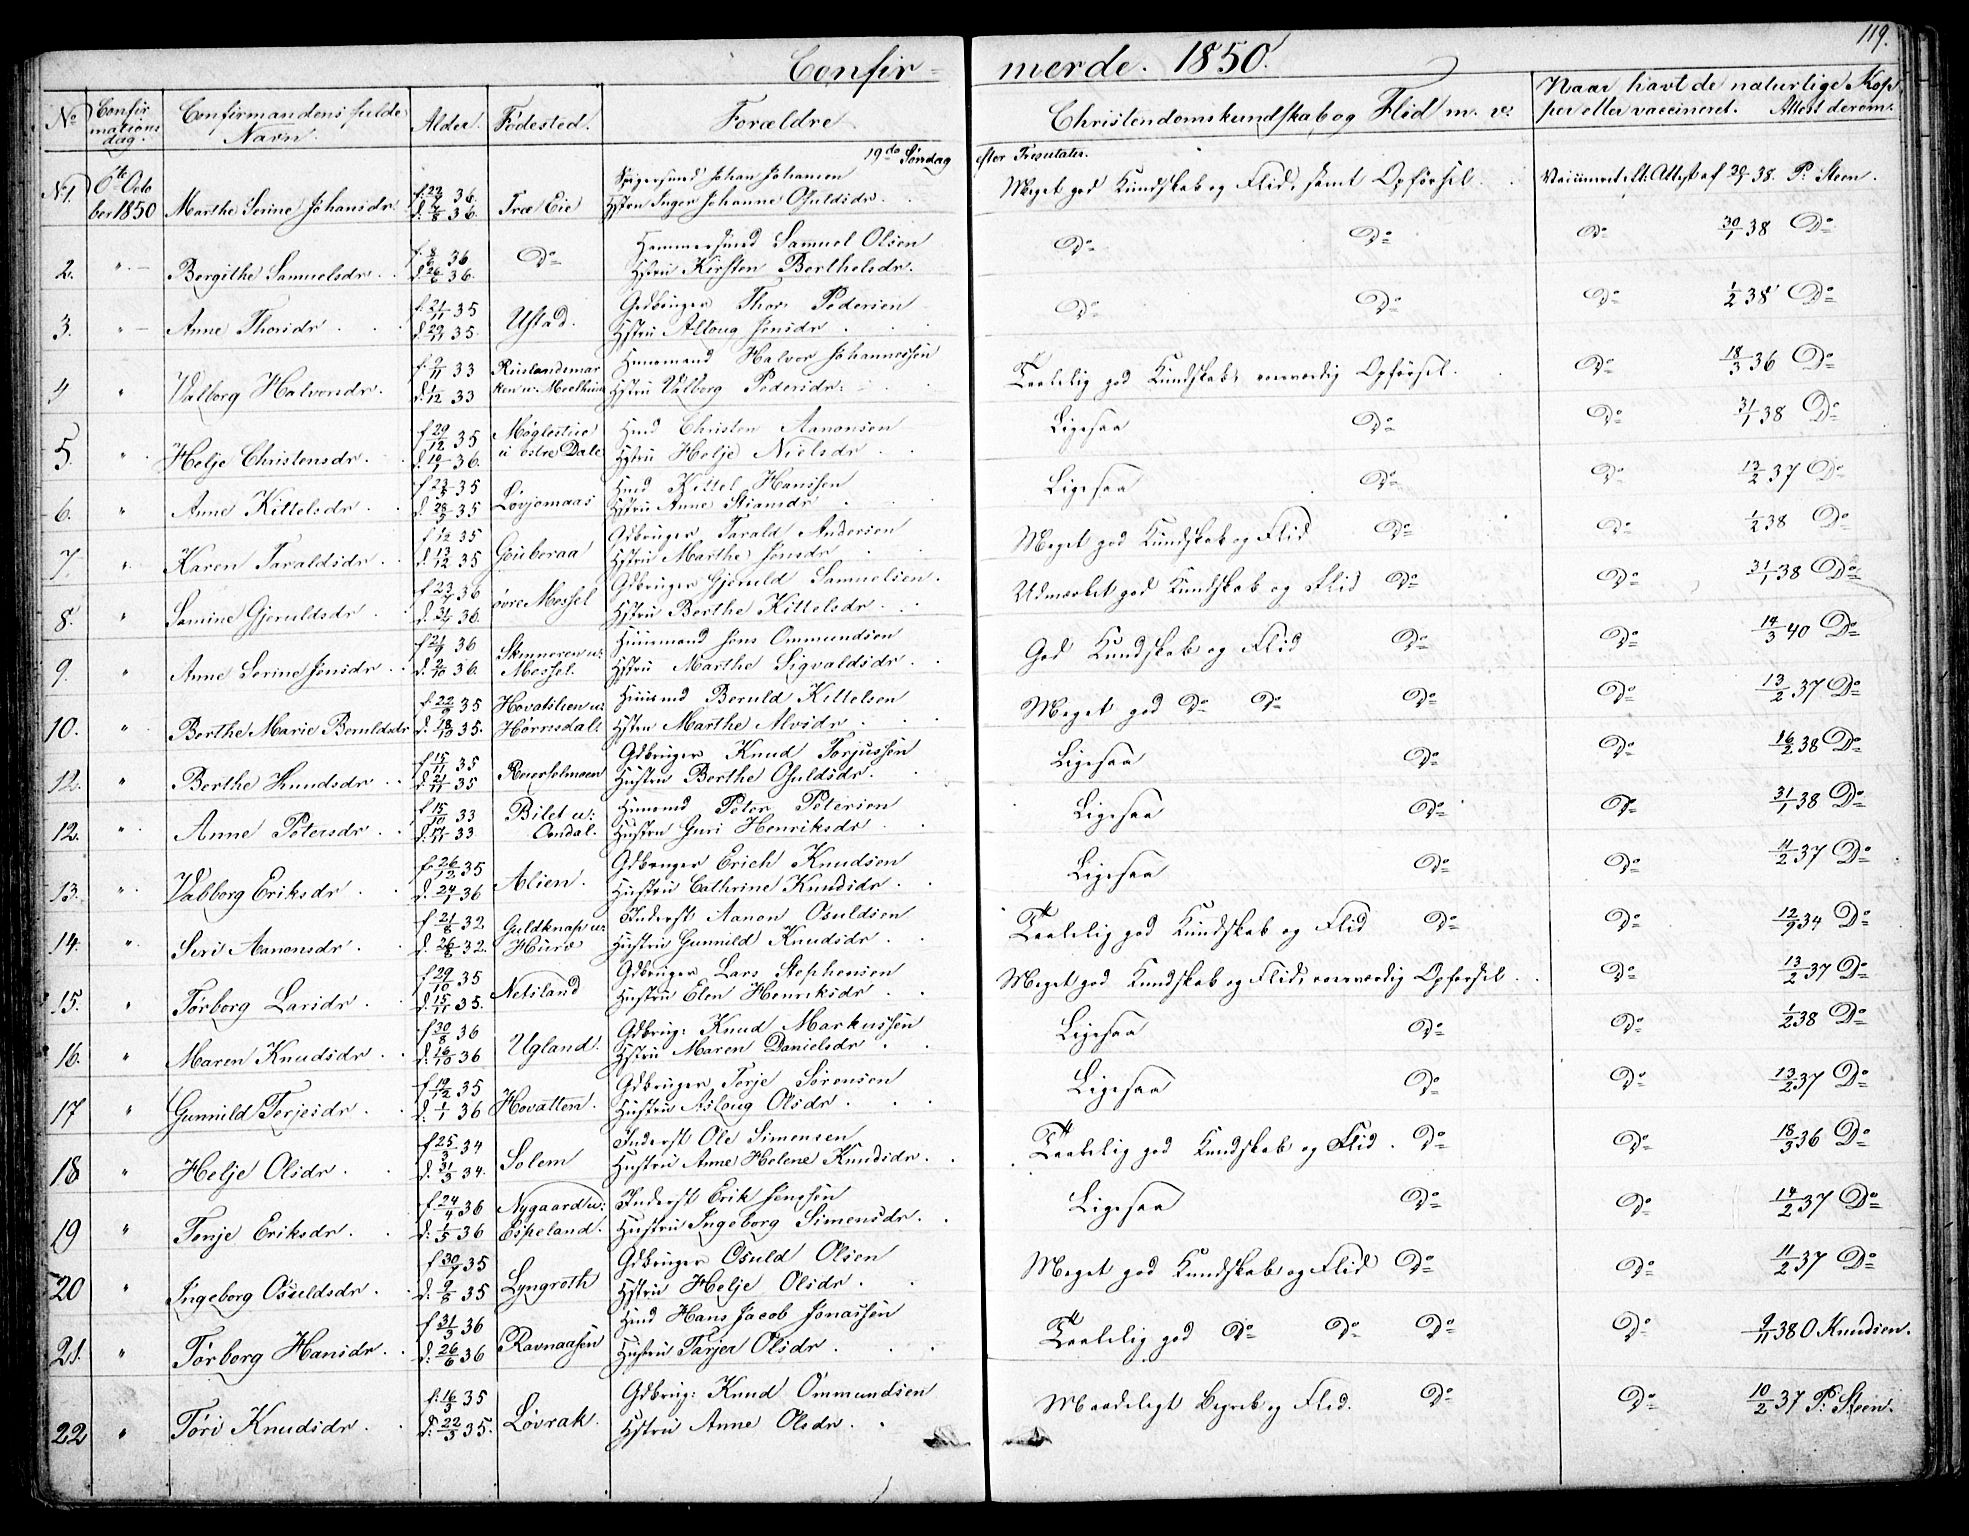 119.
Confir- merde. 1850.
No Confirmations dag. Confirmandens fulde Navn. Alder. Fødested. Forældre Christendomskundskab og Flid m. v. Naar havt de naturlige Kopper eller vaccineret. Attest derom.
19de Søndag efter Tresutatis.
No 1. 6te October 1850 Marthe Serine Johansdr f: 22/7 36. d. 7/8 36. Træ Eie Johan Johansen Hstru Inger Johanne Osuldsdr. Meget god Kundskab og Flid, samt Opførsel. Vaccineret ilt: Attest af 38. P: Steen.
2. " Bergithe Samuelsdr. f. 8/6 36 d. 26/6 36. Do Samuel Olsen Hstru Kirsten Berthelsdr. Do Do Do 30/1 38 Do
3. " Anne Thorsdr f: 21/11 35 d. 29/11 35. Ustad. Gdbruger Thor Pedersen Hstru Asloug Jensdr Do Do Do 1/2 38 Do
4 " Valborg Halvorsdr. f. 9/11 33 d. 1/12 33 Huusmand Halvor Johannessen Hstru Valborg Pedersdr. Taalelig god Kundskab, roesværdig Opførsel. Do 18/3 36 Do
5. " Helje Christensdr. f 29/12 35 d. 10/1 36. Møglestue u østre Dale Hmd Christen Aanonsen Hstru Helje Nielsdr Ligesaa Do Do 31/1 38 Do
6. " Anne Kittelsdr. f 35 d. 35 Løvjomaas Hmd Kittel Hansen Hstru Anne Stiansdr Ligesaa Do Do 13/2 37 Do
7. " Karen Taraldsdr. f 1/12 35 d. 13/12 35 Grüberaa Gdbruger Tarald Andersen Hstru Marthe Jensdr Meget god Kundskab og Flid Do Do 1/2 38 Do
8. " Samine Gjeruldsdr f 23/7 36 d. 31/7 36. øvre Mossel Gdbruger Gjeruld Samuelsen. Hstru Berthe Kittelsdr. Udmærket god Kundskab og Flid Do Do 31/1 38 Do
9. " Anne Serine Jensdr f 21/9 36 d. 2/10 36. Skinneren u: Mossel. Huusmand Jens Ommundsen Hstru Marthe Sigvaldsdr. God Kundskab og Flid Do Do 14/3 40 Do
10. " Berthe Marie Beruldsdr f 22/9 35 d. 18/10 35. Hovatslien u: Hørrisdal. Huusmd Beruld Kittelsen Hstru Marthe Alvsdr. Meget god Do Do Do Do 13/2 37 Do
12. " Berthe Knudsdr f 15/11 35 d 21/11 35 Reiersholmoen Gdbruger Knud Torjussen Hustru Berthe Osuldsdr. Ligesaa Do Do 16/2 38 Do
12. " Anne Petersdr f 15/10 33 d. 33 Bilet u: Omdal. Huusmd Peter Petersen Hustru Guri Henriksdr Ligesaa Do Do 31/1 38 Do
13. " Valborg Eriksdr f: 26/12 35 d. 24/1 36 Alien. Gdbruger Erich Knudsen Hustru Cathrine Knudsdr. Ligesaa Do Do 11/2 37 Do
14. " Siri Aanonsdr f 21/8 32 d. 26/8 32. Guldknap u: Hüre Inderst Aanon Osuldsen Hustru Gunnild Knudsdr. Taalelig god Kundskab og Flid Do Do 12/9 34 Do
15. " Tørborg Larsdr f 29/10 35 d. 15/11 35. Netsland Gdbruger Lars Stephensen Hustru Elen Henriksdr. Meget god Kundskab og Flid, roesværdig Opførsel Do 13/2 37 Do
16. " Maren Knudsdr. f 30/8 36 d. 16/10 36 Ugland. Gdbrug: Knud Markussen Hstru Maren Danielsdr Ligesaa Do Do 1/2 38 Do
17 " Gunnild Terjesdr f 19/12 35 d. 1/1 36 Hovatten. Gdbruger Terje Sørensen Hustru Asloug Olsdr. Ligesaa Do Do 13/2 37 Do
18 " Helje Olsdr. f 25/3 34 d. 31/3 34. Solem Inderst Ole Simensen Hustru Anne Helene Knudsdr. Taalelig god Kundskab og Flid. Do Do 18/3 36 Do
19 " Terje Eriksdr. f 24/4 36 d. 1/5 36 Nygaard u: Espeland. Inderst Erik Jensen Hustru Ingeborg Simensdr. Ligesaa Do Do 14/2 37 Do
20 " Ingeborg Osuldsdr. f 30/7 35 d. 9/8 35 Lyngroth Gdbruger Osuld Olsen Hstru Helje Olsdr. Meget god Kundskab og Flid Do Do 11/2 37 Do
21. " Tørborg Hansdr. f 31/3 36 d. 26/6 36 Ravnaasen Hmd Hans Jacob Jonassen Hustru Tarjer Olsdr Taalelig god Do Do Do Do 9/11 38 O Knudsen.
22 " Tøri Knudsdr f: 16/3 35 d. 22/3 35. Løvrak. Gdbrug: Knud Ommundsen Hstru Anne Olsdr. Maadeligt Begreb og Flid. Do Do 10/2 37 P: Steen.